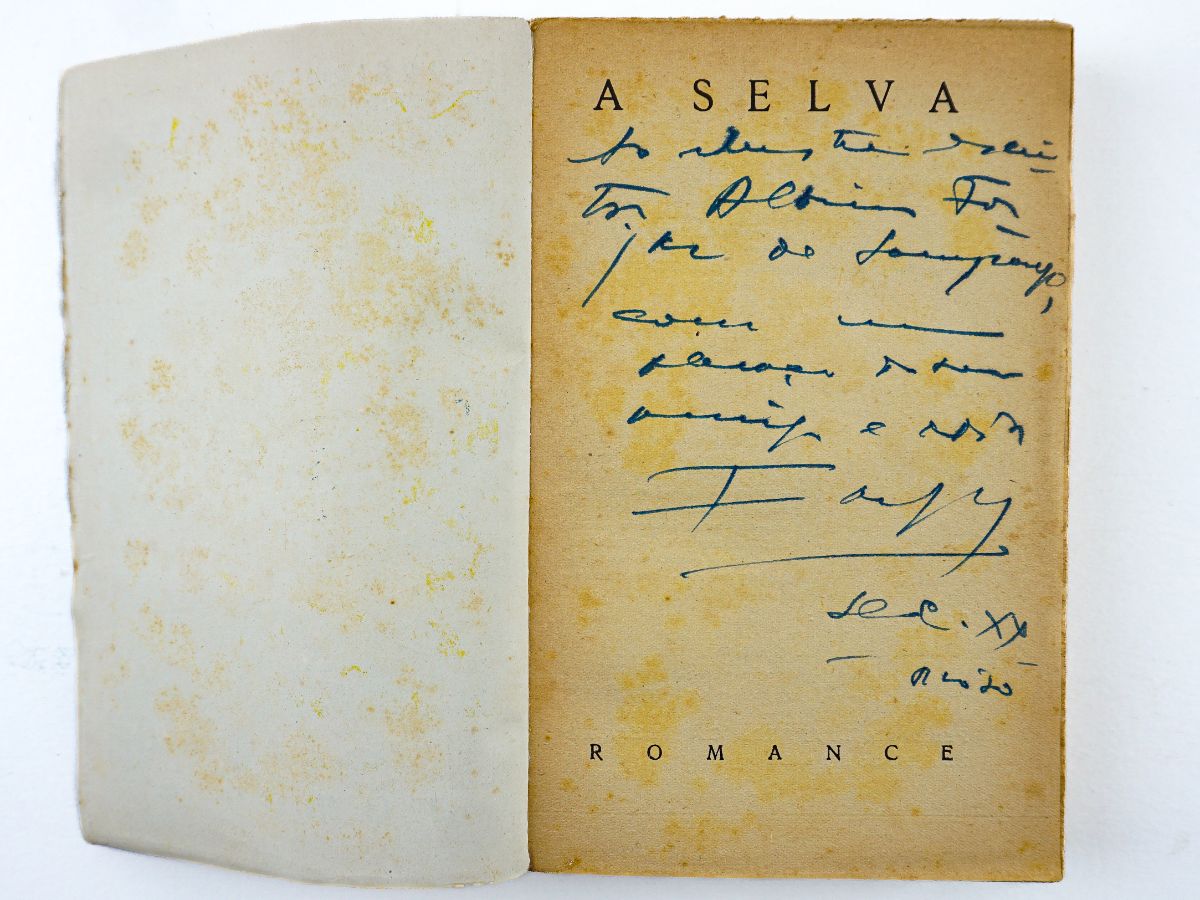 A SELVA
Ao ilustre escri-
tor Albino For-
jaz de Sampayo,
com um
abraço do seu
amigo e
Sec. XX
ROMANCE